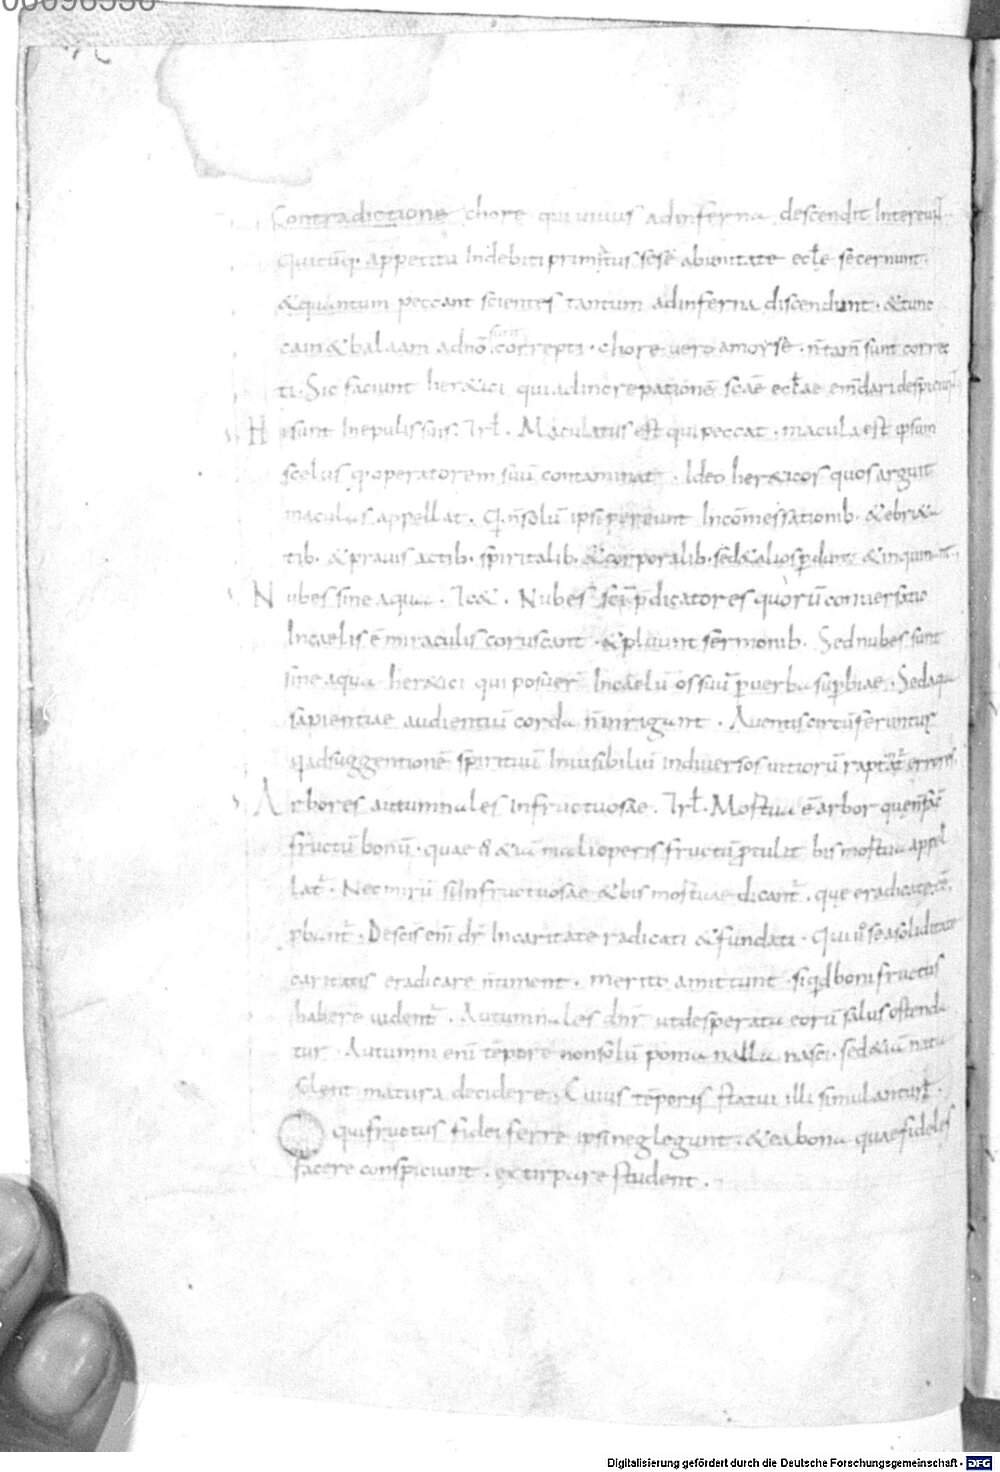 00096536
Contradictione chore qui uiuus adinferna descendit Intereunt
Quicūq· appetitu Indebiti primitus sese abunitate eccłe secernunt
&quantum peccant scientes tantum adinferna discendunt· &tunc
cain&balaam adnō sunt correpti· chore uero amoyse· n̄ tam̄ sunt correc
ti· Sic faciunt her&ici quiadincrepationē scāe eccłae em̄dari despiciunt
Hi sunt Inepulis suis· Irł· Maculatus est qui peccat· macula est ipsum
scelus q· operatorem suū contaminat· Ideo her&icos quos arguit
maculas appellat· Q· n̄solū ipsi pereunt Incōmessationib· &ebri&a
tib· &prauis actib· spiritalib· &corporalib· sed&alios pdunt &inquinant
Nubes sine aqua· Ic&· Nubes sc̄i p̄dicatores quorū conuersatio
Incaelis ē miraculis coruscant &pluunt sermonib· Sed nubes sunt
sine aqua her&ici qui posuer̄ Incaelū os suū p uerba supbiae· Sed aqua
sapientiae audientiū corda n̄ inrigant· Auentis circūferuntur
q· adsuggentionē spirituū Inuisibiliū indiuersos uitiorū errores
Arbores autumnales infructuosae· Irł· Mortua ē arbor quę n̄ fac̄
fructū bonū· quae &iā mali operis fructū ptulit bis mortua appel
lat̄· Nec mirū si Infructuosae &bis mortuae dicant̄· quę eradicatę
pbant̄· De sc̄is em̄ dr̄ Incaritate radicati &fundati· Qui se asoliditate
caritatis eradicare n̄timent· merito amittunt· siq̇d boni fructus
habere uident̄· Autumnales dn̄r ut desperata eorū salus ostenda
tur· Autumni enī tēpore nonsolū poma nulla nasci· sed&iā nata
solent matura decidere· Cuius tēporis statui illi simulantur·
Qui fructus fidei ferre ipsi neglegunt· &ea bona quae fideles
facere conspiciunt· extirpare student·
Digitalisierung gefördert durch die Deutsche Forschungsgemeinschaft - DFG